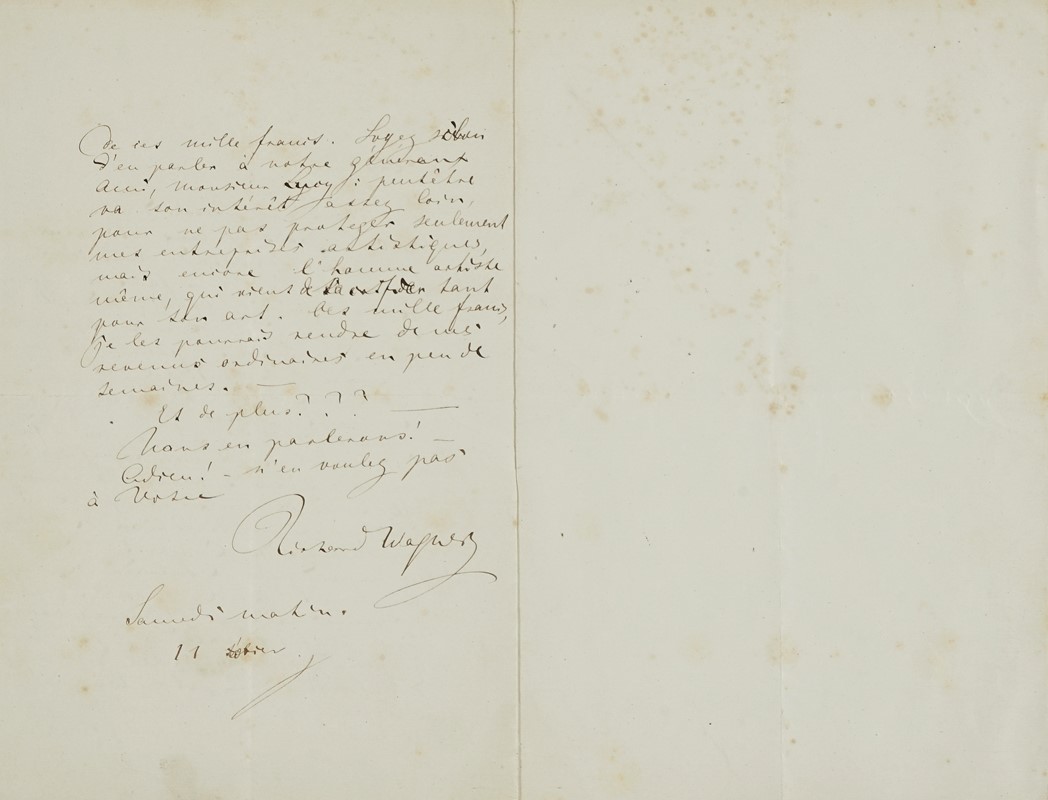 de ces mille francs. Soyez si bon
d'en parler à notre généreux
ami, monsieur Lucy : peutêtre
va son intérêt assez loin,
pour ne pas proteger seulement
mes entreprises artistiques,
mais encore l'homme artiste
même, qui vient de sacrifier tant
pour son art. Ces mille francs,
je les pourrais rendre de mes
revenus ordinaires en peu de
semaines. —
Et de plus? ? ? —
Nous en parlerons! —
Adieu! – n'en voulez pas
à Votre
Richard Wagner
Samedi matin.
11